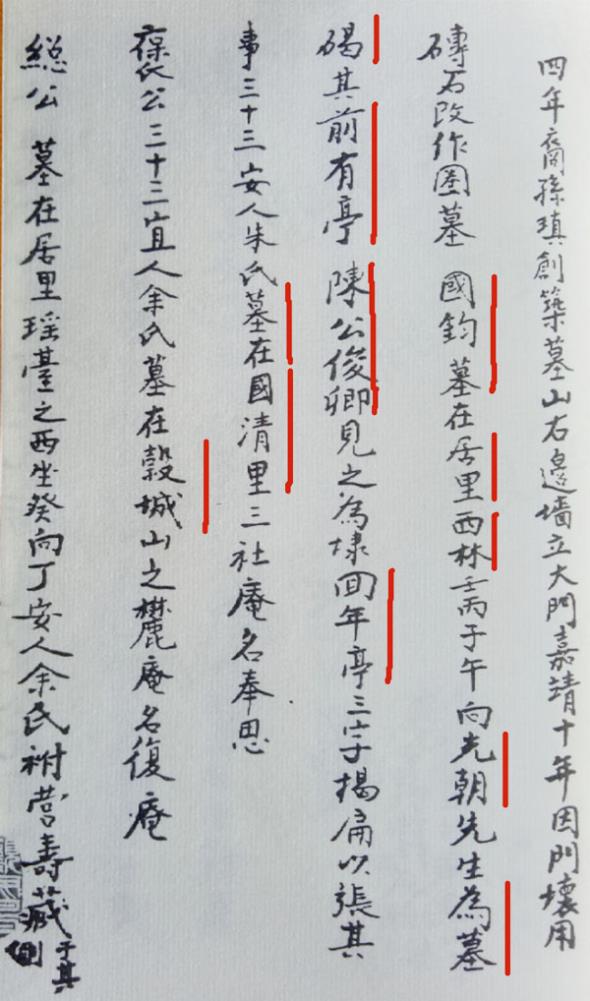 四年裔孫瑱創築墓山右邊墻立大門嘉靖十年因門壞用
磚石改作圈墓 國鈞墓在居里西林壬丙子午向光朝先生為墓
碣其前有亭 陳公俊卿見之為埭回年亭三字揭扁以張其
事三十三安人朱氏墓在國清里三社庵名奉思
葆公三十三宜人余氏墓在穀城山之麓庵名復庵
総公 墓在居里瑶臺之西坐癸向丁安人余氏祔营壽藏于其側